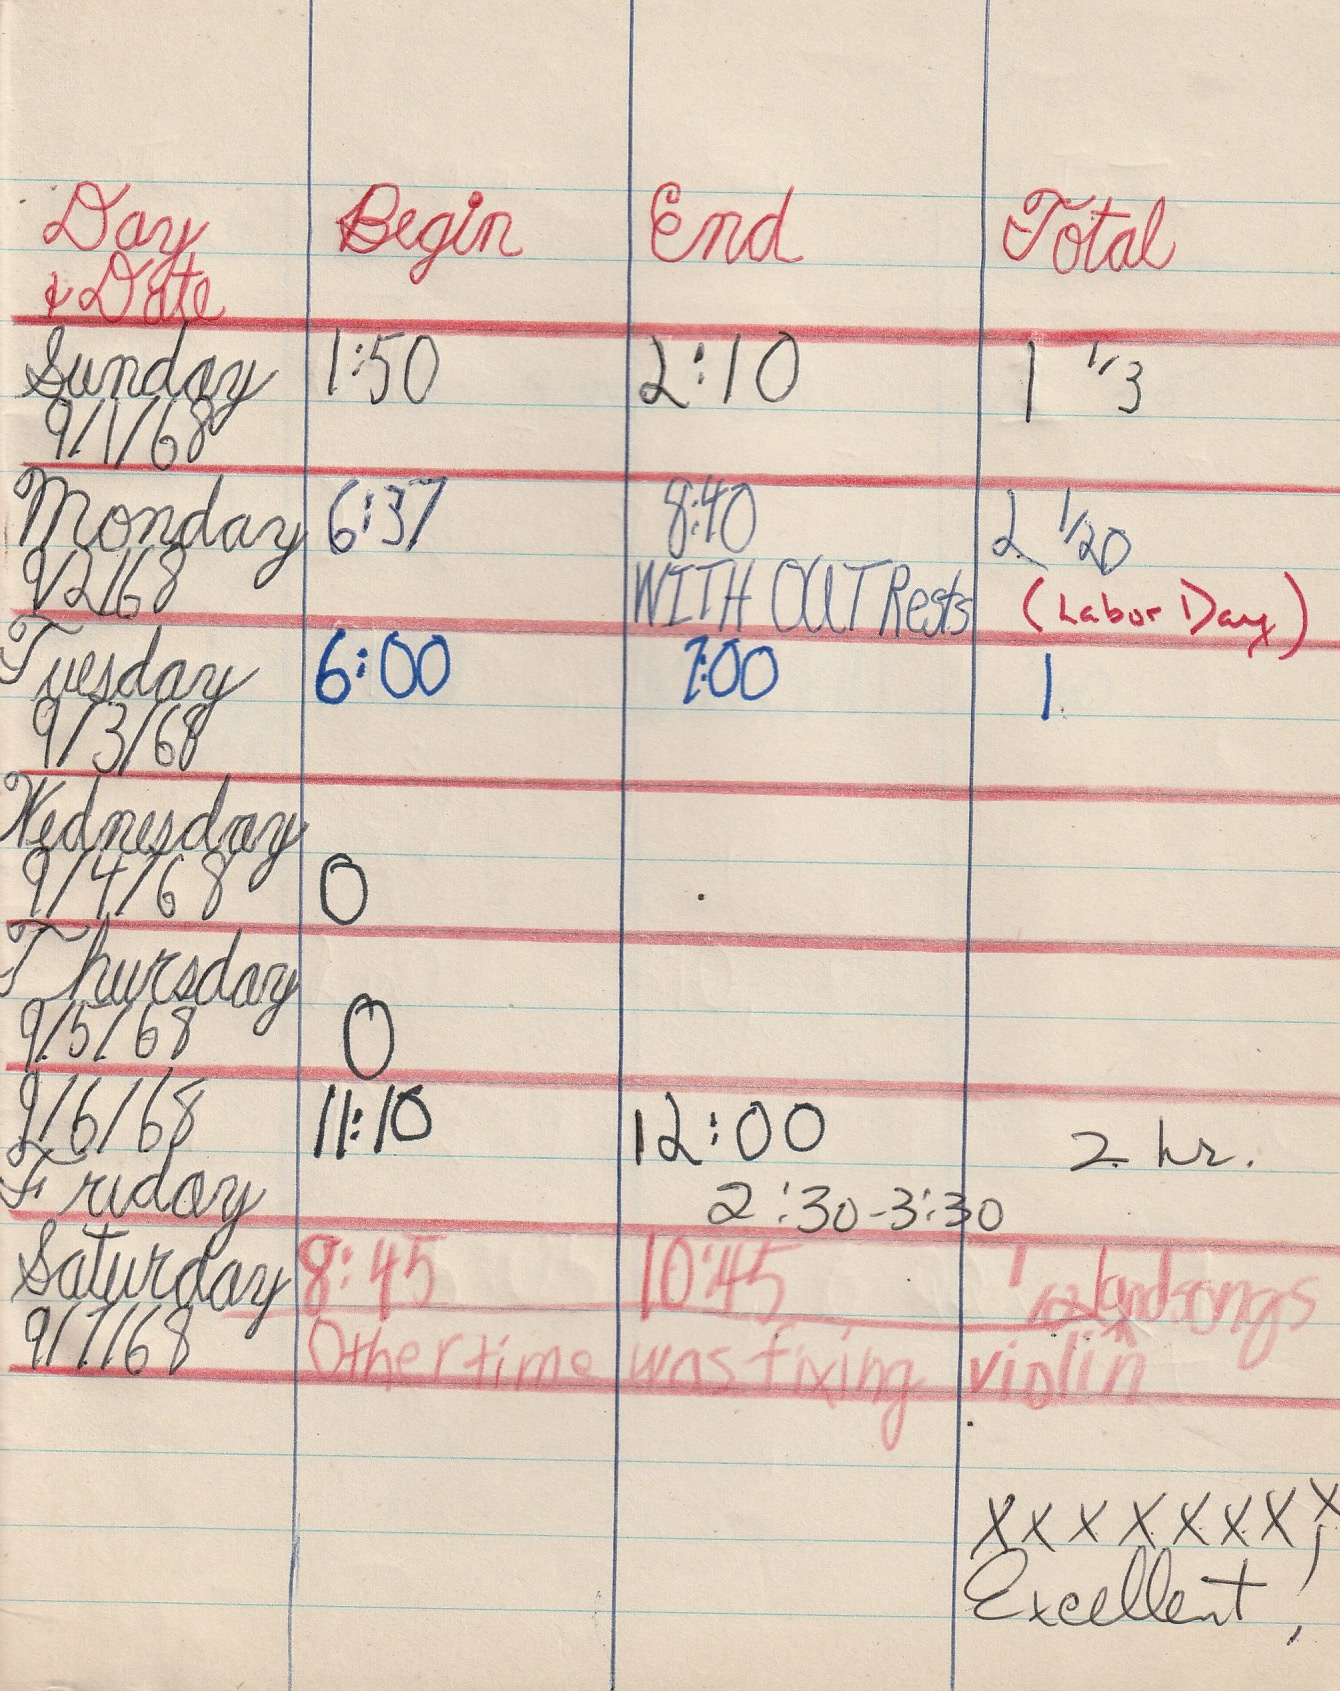 Day Begin End Total
& Date
Sunday 1:50 2:10 1 1/3
9/1/68
Monday 6:37 8:40 2 1/20
9/2/68 WITH OUT Rests (Labor Day)
Tuesday 6:00 7:00 1
9/3/68
Wednesday
9/4/68 0
Thursday
9/5/68 0
9/6/68 11:10 12:00 2 hr.
Friday 2:30-3:30
Saturday 8:45 10:45 1 songs
9/7/68 Other time was fixing violin
X X X X X X X X
Excellent!